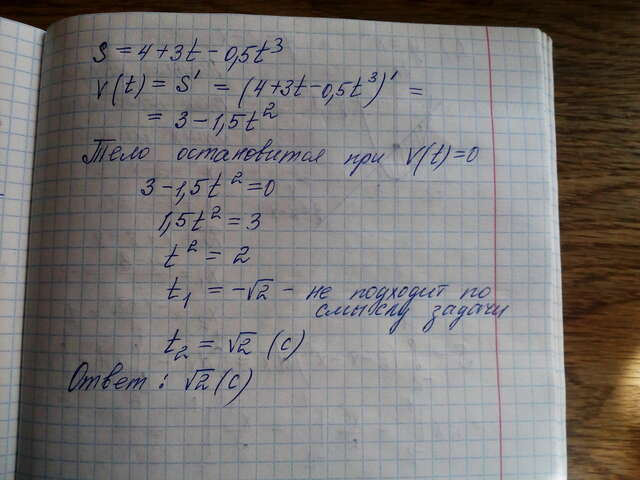 S = 4 + 3t − 0,5t³
v(t) = S' = (4+3t−0,5t³)' =
= 3 − 1,5t²
Тело остановится при v(t)=0
3 − 1,5t² = 0
1,5t² = 3
t² = 2
t₁ = −√2 − не подходит по
смыслу задачи
t₂ = √2 (с)
Ответ: √2 (с)